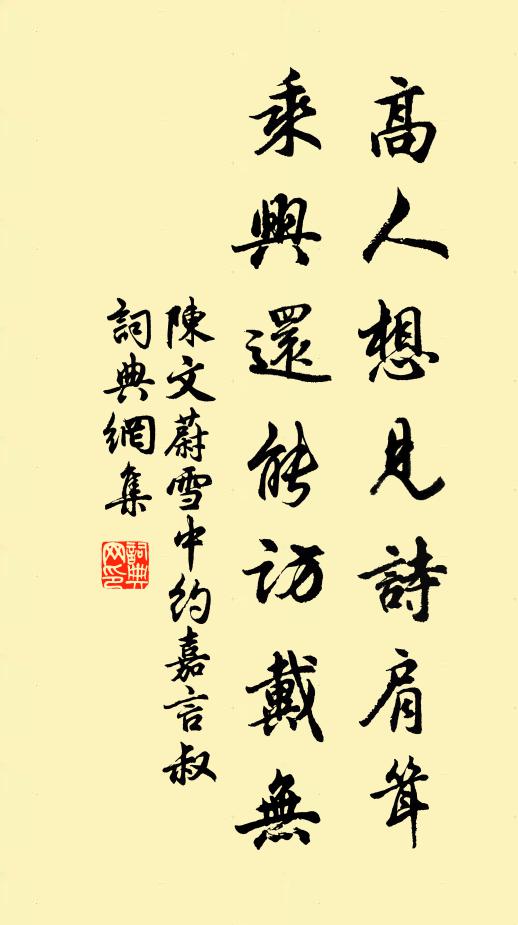 高人想見詩肩聳
乘興還能訪戴無
陳文蔚雪中約嘉言叔
詞典網集
詞典网印